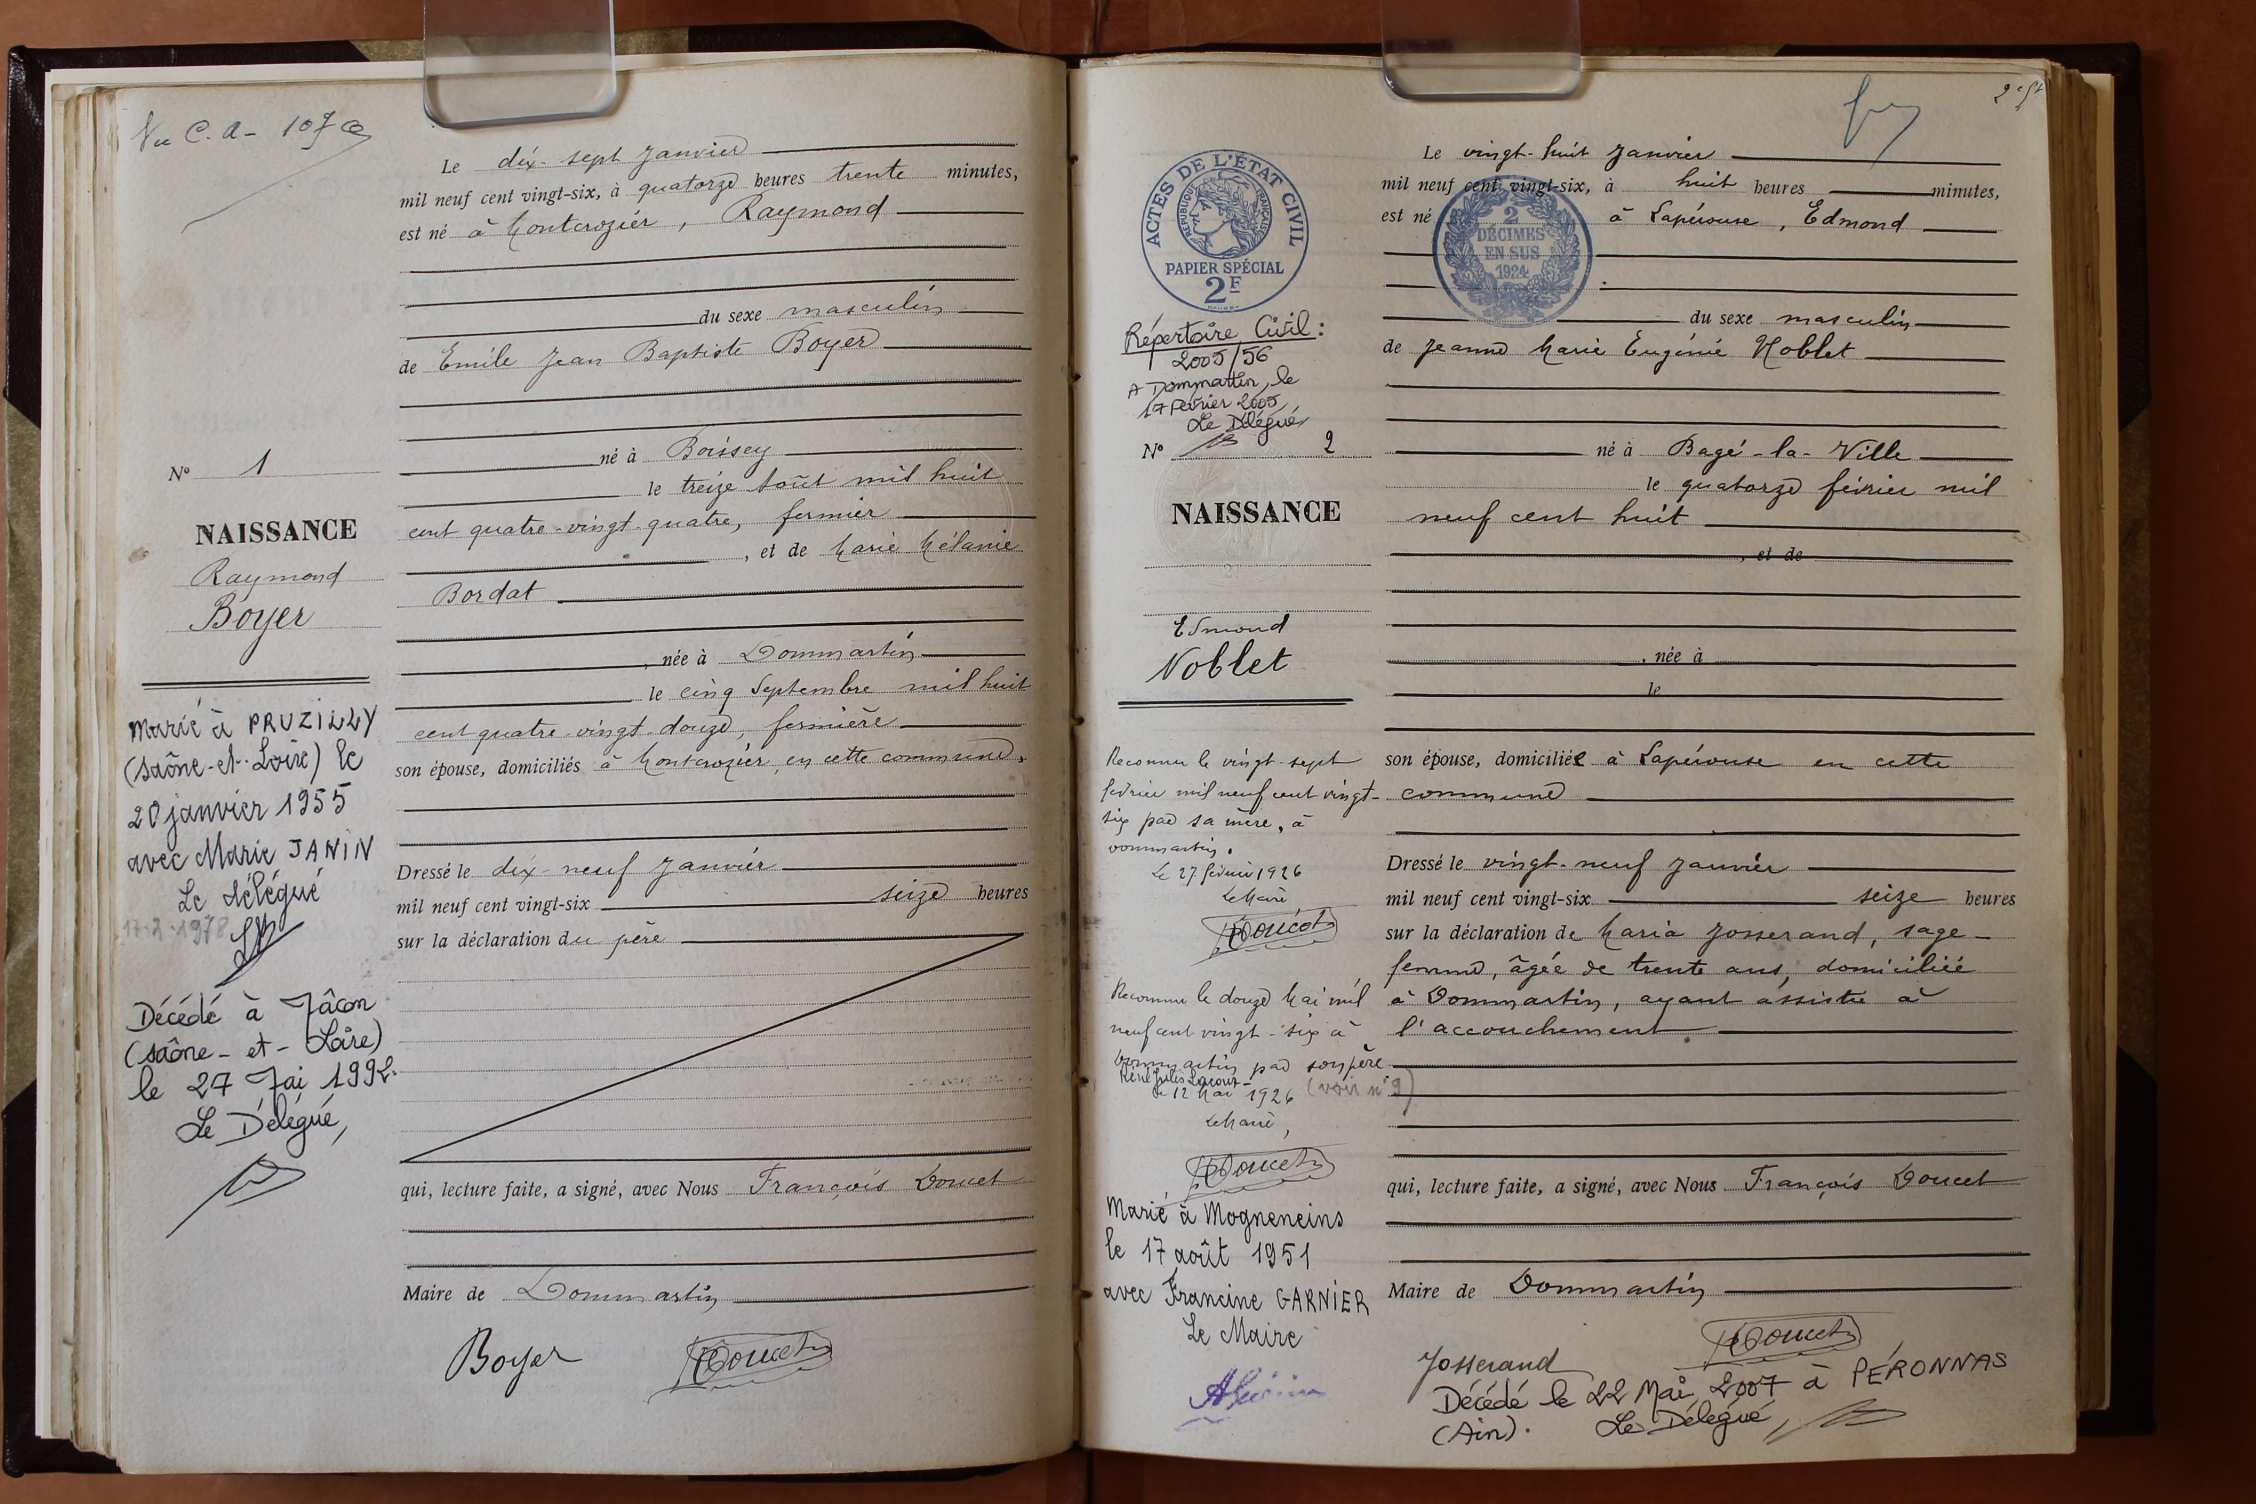 Vu C. A - 107
Le dix-sept Janvier
mil neuf cent vingt-six, à quatorze heures trente minutes,
est né à Montcrozier, Raymond
du sexe masculin
de Emile Jean Baptiste Boyer
né à Boissey
le treize Août mil huit
cent quatre-vingt-quatre, fermier
, et de Marie Mélanie
Bordat
, née à Dommartin
le cinq Septembre mil huit
cent quatre-vingt-douze, fermière
son épouse, domiciliés à Montcrozier, en cette commune.
Dressé le dix-neuf Janvier
mil neuf cent vingt-six seize heures
sur la déclaration du père
qui, lecture faite, a signé, avec Nous François Doucet
Maire de Dommartin
Boyer Doucet
N° 1
NAISSANCE
Raymond
Boyer
Marié à PRUZILLY
(Saône-et-Loire) le
20 janvier 1955
avec Marie JANIN
Le délégué
17-2-1978
Décédé à Mâcon
(Saône-et-Loire)
le 27 Mai 1992.
Le Délégué,
ACTES DE L'ÉTAT CIVIL
RÉPUBLIQUE FRANÇAISE
PAPIER SPÉCIAL
2F
Répertoire Civil :
2005/56
A Dommartin, le
17 Février 2005
Le Délégué
N° 2
NAISSANCE
Edmond
Noblet
Reconnu le vingt-sept
février mil neuf cent vingt-
six par sa mère, à
Dommartin.
Le 27 février 1926
Le Maire
Doucet
Reconnu le douze Mai mil
neuf cent vingt-six à
Dommartin par son père
René Jules Lacour
Le 12 Mai 1926 (voir n° 9)
Le Maire,
Doucet
Marié à Mogneneins
le 17 août 1951
avec Francine GARNIER
Le Maire
Le vingt-huit Janvier
mil neuf cent vingt-six, à huit heures minutes,
est né à Lapérouse, Edmond
2
DÉCIMES
EN SUS
1924
du sexe masculin
de Jeanne Marie Eugénie Noblet
né à Bagé-la-Ville
le quatorze février mil
neuf cent huit
, et de
, née à
le
son épouse, domiciliée à Lapérouse en cette
commune
Dressé le vingt-neuf Janvier
mil neuf cent vingt-six seize heures
sur la déclaration de Maria Josserand, sage-
femme, âgée de trente ans, domiciliée
à Dommartin, ayant assisté à
l'accouchement
qui, lecture faite, a signé, avec Nous François Doucet
Maire de Dommartin
Josserand Doucet
Décédé le 22 Mai 2007 à PÉRONNAS
(Ain). Le Délégué,